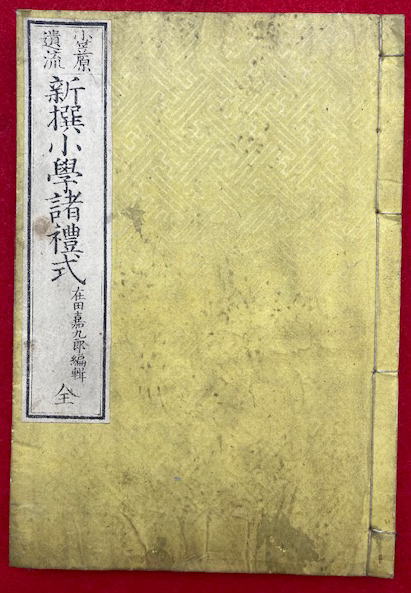 小笠原
遺流
新撰小學諸禮式
在田嘉九郎編輯
全